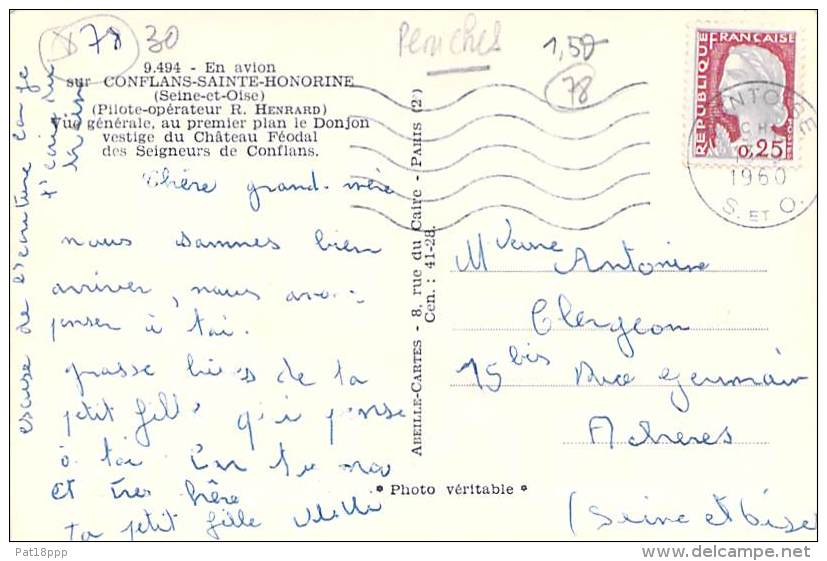 78 30
Peniches
1,50
78
9.494 - En avion
sur CONFLANS-SAINTE-HONORINE
(Seine-et-Oise)
(Pilote-opérateur R. HENRARD)
Vue générale, au premier plan le Donjon
vestige du Château Féodal
des Seigneurs de Conflans.
REPUBLIQUE FRANÇAISE
0,25
1960
S. ET O.
Chère grand-mère
nous sommes bien
arriver, nous avons
penser à toi.
grosse bises de ta
petit fille qui pense
à toi
et très chère
ta petit fille
escuse de l'escriture car je
t'écris du
ABEILLE-CARTES - 8, rue du Caire - PARIS (2e)
Cen. : 41-28.
M Veuve Antonine
Clergeon
15 bis Rue Germain
Acheres
(Seine et Oise
* Photo véritable *
Pat18ppp
delcampe.net